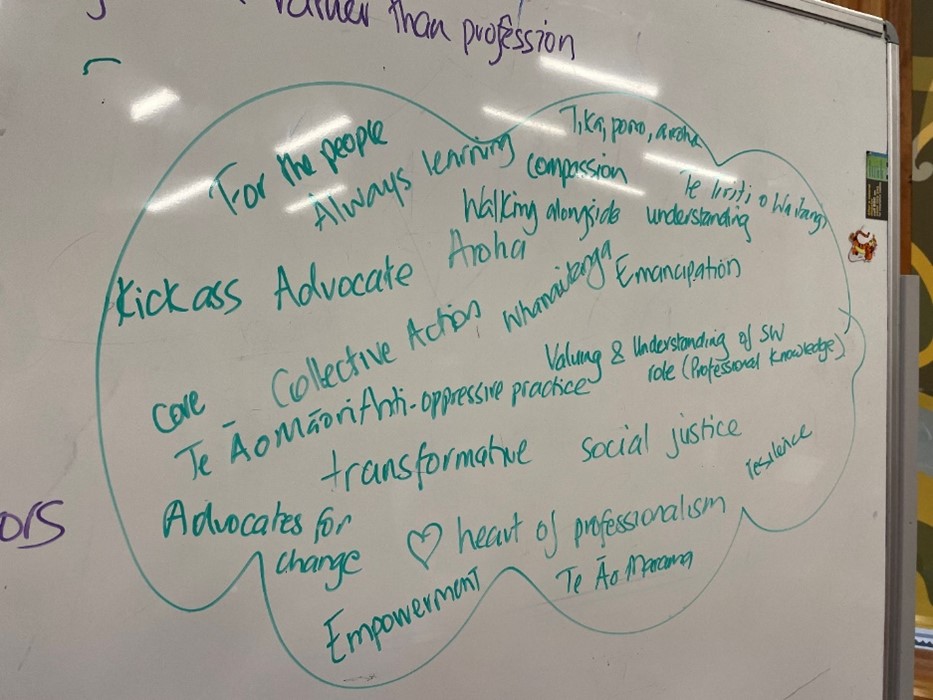 rather than profession
For the people
Tika, pono, aroha
Always learning
compassion
Te Tiriti o Waitangi
Walking alongside
understanding
Kickass Advocate
Aroha
Whanaungatanga
Emancipation
Collective Action
Valuing & Understanding of SW
role (Professional Knowledge)
Core
Te Āo Māori
Anti-oppressive practice
transformative
social justice
resilience
Advocates for
change
♡ heart of professionalism
Empowerment
Te Āo Marama
ors